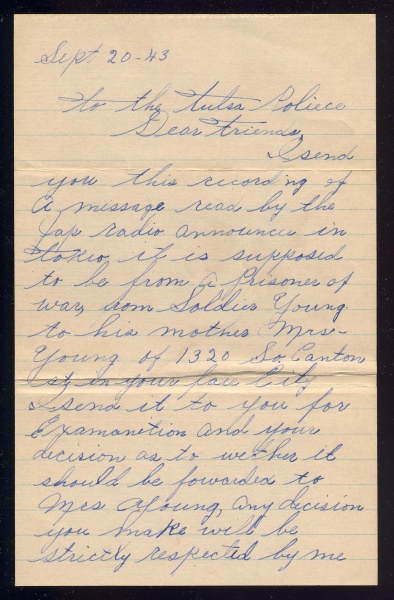 Sept 20-43
to the tulsa Poliece
Dear Friends,
I send
you this recording of
a message read by the
Jap radio announcer in
tokio, it is supposed
to be from a Prisoner of
war, from Soldier Young
to his mother Mrs-
Young of 1320 So, Canton
st in your fair City,
I send it to you for
Examanetion and your
decision as to wether it
should be fowarded to
Mrs Young, any decision
you make will be
strictly respected by me